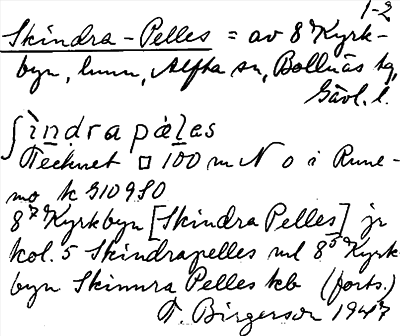 1-2
Skindra-Pelles = av 8⁷ Kyrk-
byn, hmn, Alfta sn, Bollnäs tg,
Gävl. l.
ʃìndrapæ̀les
Tecknet □ 100 m N o i Rune-
mo k G10980
8⁷ Kyrkbyn [Skindra Pelles] jr
kol. 5 Skindrapelles ml 8⁵ Kyrk-
byn Skinnra Pelles kb (forts.)
T. Birgerson 1947